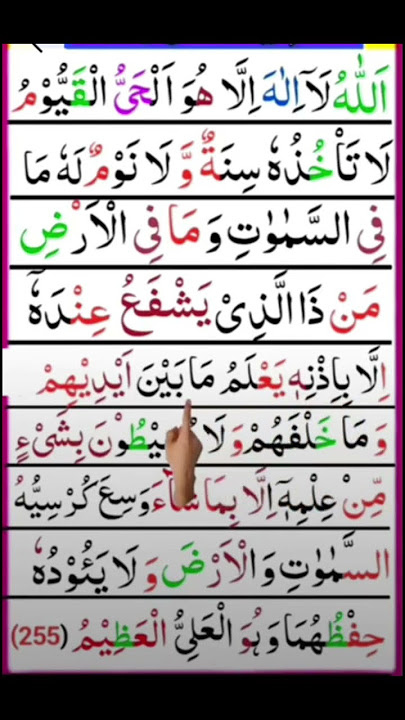 اَللّٰهُ لَاۤ اِلٰهَ اِلَّا هُوَ اَلْحَیُّ الْقَیُّوْمُ
لَا تَاْخُذُهٗ سِنَةٌ وَّ لَا نَوْمٌ لَهٗ مَا
فِی السَّمٰوٰتِ وَ مَا فِی الْاَرْضِ
مَنْ ذَا الَّذِیْ یَشْفَعُ عِنْدَهٗۤ
اِلَّا بِاِذْنِهٖ یَعْلَمُ مَا بَیْنَ اَیْدِیْهِمْ
وَ مَا خَلْفَهُمْ وَ لَا یُحِیْطُوْنَ بِشَیْءٍ
مِّنْ عِلْمِهٖۤ اِلَّا بِمَا شَآءَ وَسِعَ كُرْسِیُّهُ
السَّمٰوٰتِ وَ الْاَرْضَ وَ لَا یَـُٔوْدُهٗ
حِفْظُهُمَا وَ هُوَ الْعَلِیُّ الْعَظِیْمُ (255)